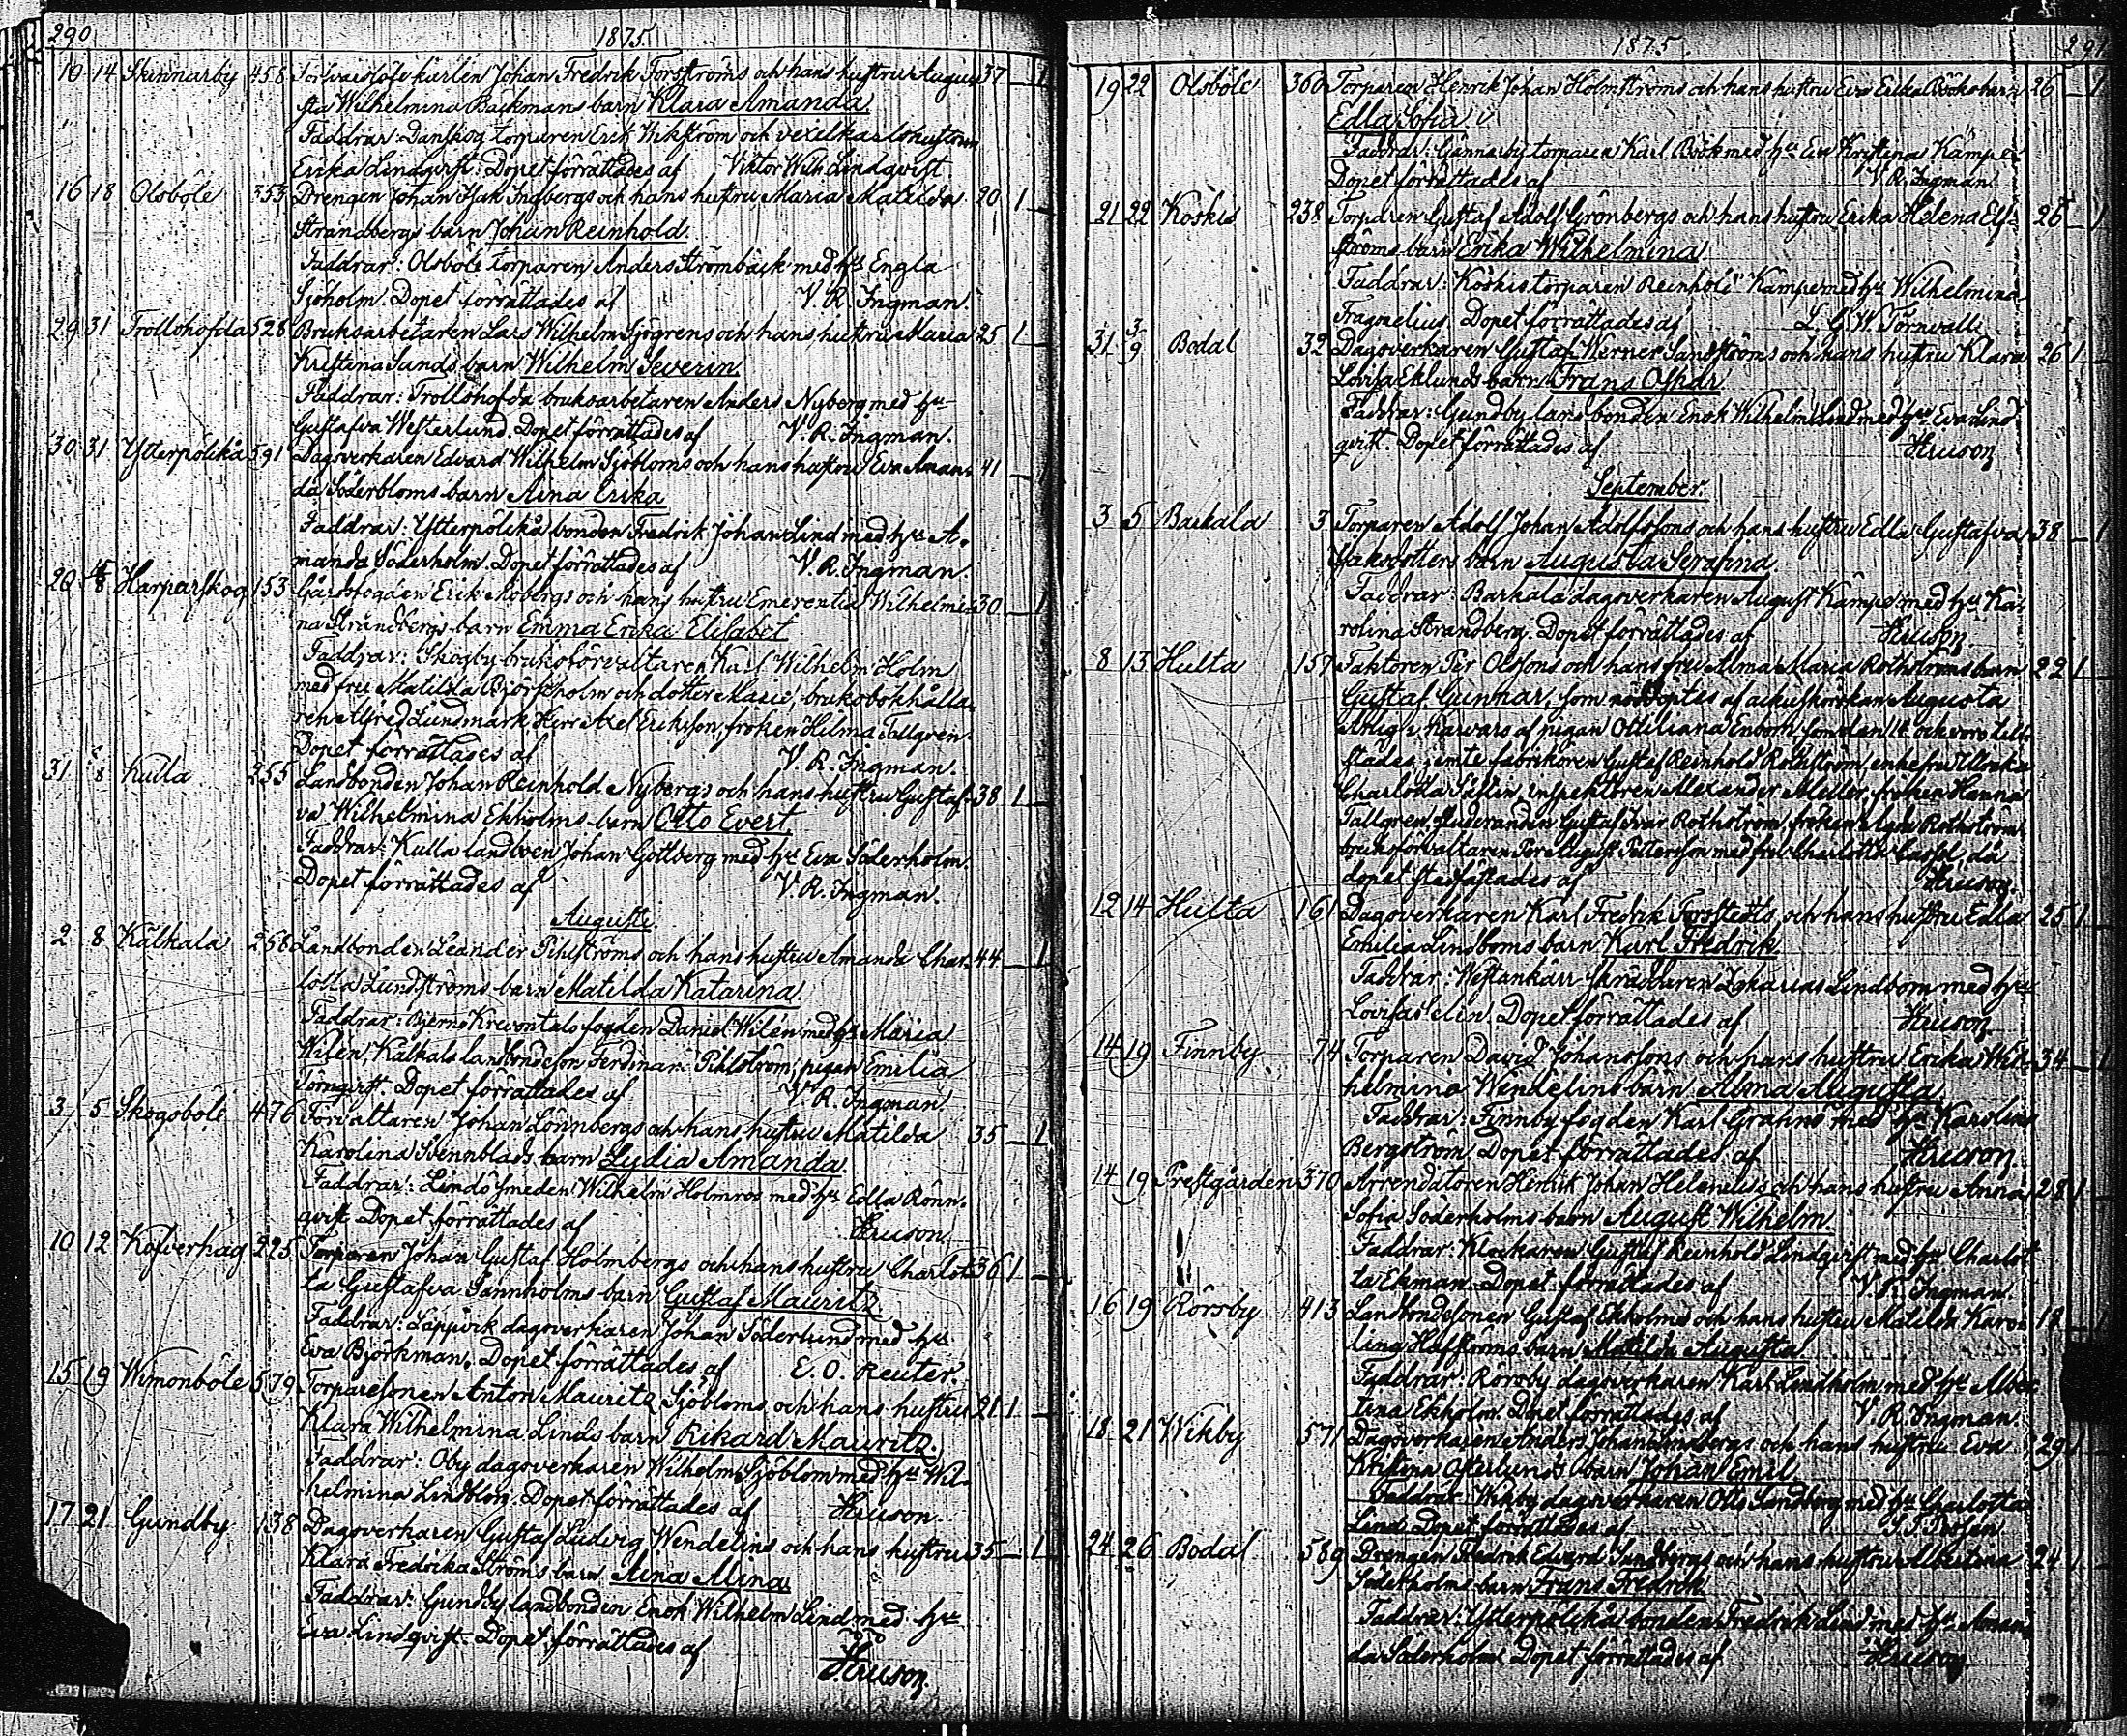 290
1875
10 14 Skinnarby 458 Försvarslöse karlen Johan Fredrik Forsströms och hans hustru Augus- 37 – 1
sta Wilhelmina Bäckmans barn Klara Amanda
Faddrar: Danskog torparen Erik Wikström och vexelkarlshustrun
Erika Lindqvist. Dopet förrättades af Viktor Wilh Lindqvist
16 18 Olsböle 353 Drengen Johan Isak Ingbergs och hans hustru Maria Matilda 20 1 –
Strandbergs barn Johan Reinhold.
Faddrar: Olsböle torparen Anders Strömbäck med hu Engla
Sjöholm. Dopet förrättades af V. R. Ingman.
29 31 Trollshofda 528 Bruksarbetaren Lars Wilhelm Sjögrens och hans hustru Maria 25 1 –
Kristina Sands barn Wilhelm Severin.
Faddrar: Trollshofda bruksarbetaren Anders Nyberg med hu
Gustafva Westerlund. Dopet förrättades af V. R. Ingman.
30 31 Ytterpölikä 591 Dagsverkaren Edvard Wilhelm Sjöbloms och hans hustru Eva Aman- 41 – 1
da Söderbloms barn Aina Erika
Faddrar: Ytterpölikå bonden Fredrik Johan Lind med hu A-
manda Söderholm. Dopet förrättades af V. R. Ingman.
20 Harparskog 153 Gårdsfogden Erik Mobergs och hans hustru Emerentia Wilhelmi- 30 – 1
na Strandbergs barn Emma Erika Elisabet
Faddrar: Skogby bruksförvaltaren Karl Wilhelm Holm
med fru Matilda Björkholm och dotter Marie, bruksbokhålla-
ren Alfred Lundmark Herr Axel Eriksson, fröken Hilma Tallgren.
Dopet förrättades af V. R. Ingman.
31 8/8 Kulla 255 Landbonden Johan Reinhold Nybergs och hans hustru Gustaf- 38 1 –
va Wilhelmina Ekholms barn Otto Evert
Faddrar: Kulla landboen Johan Gottberg med hu Eva Söderholm.
Dopet förrättades af V. R. Ingman.
Augusti.
2 8 Kälkala 268 Landbonden Leander Pihlströms och hans hustru Amanda Char- 44 – 1
lotta Lundströms barn Matilda Katarina.
Faddrar: Bjernö Krevontalo fogden Daniel Wilén med hu Maria
Wilén, Kälkala landbondeson Ferdinan. Pihlström, pigan Emilia
Törnqvist. Dopet förrättades af V. R. Ingman.
3 5 Skogsböle 476 Förvaltaren Johan Lönnbergs och hans hustru Matilda 35 – 1
Karolina Svennblads barn Lydia Amanda.
Faddrar: Lindö smeden Wilhelm Holmros med hu Edla Rönn-
qvist Dopet förrättades af
10 12 Kofverhag 225 Torparen Johan Gustaf Holmbergs och hans hustru Charlot- 36 1 –
ta Gustafva Sannholms barn Gustaf Mauritz.
Faddrar: Lappvik dagsverkaren Johan Söderlund med hu
Eva Björkman. Dopet förrättades af E. O. Reuter.
15 19 Wimonböle 579 Torparesonen Anton Mauritz Sjöbloms och hans hustru 21 1 –
Klara Wilhelmina Linds barn Rikard Mauritz.
Faddrar: Öby dagsverkaren Wilhelm Sjöblom med hu Wil-
helmina Lindblom. Dopet förrättades af
17 21 Gundby 138 Dagsverkaren Gustaf Ludvig Wendelins och hans hustru 35 – 1
Klara Fredrika Ströms barn Aina Mina
Faddrar: Gundby landbonden Enok Wilhelm Lind med hu
Eva Lindqvist. Dopet förrättades af
1875. 291
19 22 Olsböle 360 Torparen Henrik Johan Holmströms och hans hustru Eva Erika Bööks barn 26 – 1
Edla Sofia
Faddrar: Gennarby torparen Karl Böök med hu Eva Kristina Kämpe
Dopet förrättades af V. R. Ingman.
21 22 Koskis 238 Torparen Gustaf Adolf Grönbergs och hans hustru Erika Helena Elf- 26 – 1
ströms barn Erika Wilhelmina
Faddrar: Koskis torparen Reinhold Kämpe med hu Wilhelmina
Fragnelius. Dopet förrättades af L. G. W. Törnvall.
31 3/9 Bodal 32 Dagsverkaren Gustaf Werner Sandströms och hans hustru Klara 26 1 –
Lovisa Eklunds barn Frans Oskar
Faddrar: Gundby landbonden Enok Wilhelm Lind med hu Eva Lind-
qvist. Dopet förrättades af
September.
3 5 Barkala 3 Torparen Adolf Johan Adolfssons och hans hustru Edla Gustafva 38 – 1
Isaksdotters barn Augusta Serafina.
Faddrar: Barkala dagsverkaren August Kämpe med hu Ka-
rolina Strandberg. Dopet förrättades af
8 13 Hulta 157 Faktoren Per Olssons och hans fru Alma Maria Rothströms barn 22 1
Gustaf Gunnar, som nöddöptes af Augusta
af pigan Ottiliana Enbom,
stades, jemte fabrikören Gustaf Reinhold Rothström, enkefru Ulrika
Charlotta inspektoren Alexander Miller, fröken Hanna
Tallgren, studeranden Gustaf Ivar Rothström, fröken Rothström,
bruksförvaltaren Per August Pettersson med fru Charlotta då
dopet stadfästades af
12 14 Hulta 161 Dagsverkaren Karl Fredrik Forstedts och hans hustru Edla 25 1
Emilia Lindboms barn Karl Fredrik
Faddrar: Westankärr skräddaren Zakarias Lindbom med hu
Lovisa Selin. Dopet förrättades af
14 19 Finnby 74 Torparen David Johanssons och hans hustru Erika Wil- 34 – 1
helmina Wendelins barn Alma Augusta
Faddrar: Finnby fogden Karl Grahns med hu Karolina
Bergström. Dopet förrättades af
14 19 Prestgården 370 Arrendatoren Henrik Johan Helenius och hans hustru Anna 28 1
Sofia Söderholms barn August Wilhelm.
Faddrar: Klockaren Gustaf Reinhold Lindqvist med hu Charlot
ta Ekman. Dopet förrättades af V. R. Ingman.
16 19 Rörsby 413 Landbondesonen Gustaf Ekholms och hans hustru Matilda Karo-
lina barn Matilda Augusta
Faddrar: Rörsby dagsverkaren Karl Lindholm med hu Alber
tina Ekholm. Dopet förrättades af V. R. Ingman.
18 21 Wikby 571 Dagsverkaren Anders Johan Lindbergs och hans hustru Eva 29 1
Kristina Österlunds barn Johan Emil.
Faddrar: Wikby dagsverkaren Otto Sandberg med hu Charlotta
Lind. Dopet förrättades af
24 26 Bodal 589 Drengen Fredrik Edvard Sundbergs och hans hustru Albertina 24 1
Söderholms barn Frans Fredrik
Faddrar: Ytterpölikå bonden Fredrik Lind med hu Aman
da Söderholm Dopet förrättades af